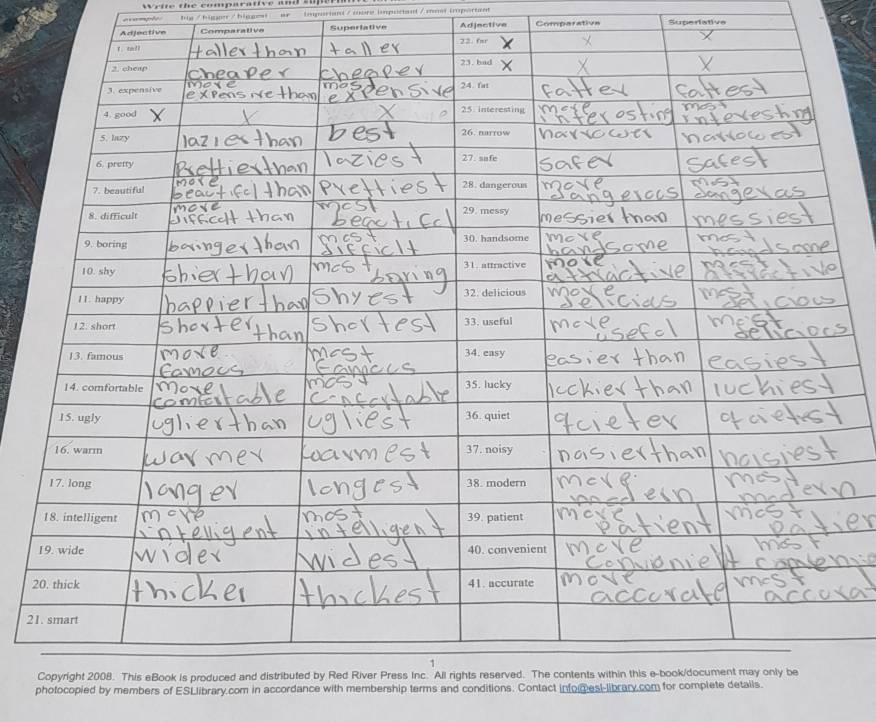 Write the comparative and
example: big / bigger / biggest or important / more important / most important
Adjective Comparative Superlative Adjective Comparative Superlative
1. tall taller than taller 22. far X X X
2. cheap cheaper cheaper 23. bad X X X
3. expensive more expensive than most expensive 24. fat fatter fattest
4. good X X X 25. interesting more interosting most interesting
5. lazy lazier than best 26. narrow narrower narrowest
6. pretty Prettier than laziest 27. safe safer safest
7. beautiful more beautifcl than prettiest 28. dangerous more dangeroas most dangeroas
8. difficult more difficclt than most beactifcl 29. messy messier than messiest
9. boring boringer than most difficlt 30. handsome more handsome most handsome
10. shy shier than most boring 31. attractive more attractive most attractive
11. happy happier than Shyest 32. delicious more delicias most delicious
12. short shorter than shortest 33. useful more usefcl most deliciocs
13. famous more famocs most famocs 34. easy easier than easiest
14. comfortable more comfortable most 35. lucky lcckier than luckiest
15. ugly uglier than ugliest 36. quiet qcieter qcietest
16. warm warmer warmest 37. noisy nosier than noisiest
17. long longer longest 38. modern more modern most modern
18. intelligent more intelligent most intelligent 39. patient more patient most patien
19. wide wider widest 40. convenient more most
20. thick thicker thickest 41. accurate more accurate most accurat
21. smart
1
Copyright 2008. This eBook is produced and distributed by Red River Press Inc. All rights reserved. The contents within this e-book/document may only be
photocopied by members of ESLlibrary.com in accordance with membership terms and conditions. Contact info@esl-library.com for complete details.